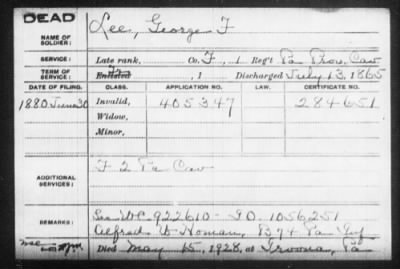 DEAD
NAME OF SOLDIER: Lee, George F
SERVICE: Late rank, Co. F, 1 Reg't Pa Prov. Cav
TERM OF SERVICE: Enlisted , 1 Discharged July 13, 1865
DATE OF FILING. CLASS. APPLICATION NO. LAW. CERTIFICATE NO.
1880 June 30 Invalid, 405347 284651
Widow,
Minor,
ADDITIONAL SERVICES: F 2 Pa Cav
REMARKS: See WC 922610 - 1056251
Alfred W Homan, B 74 Pa Inf
Died May 15, 1928, at Irvona, Pa